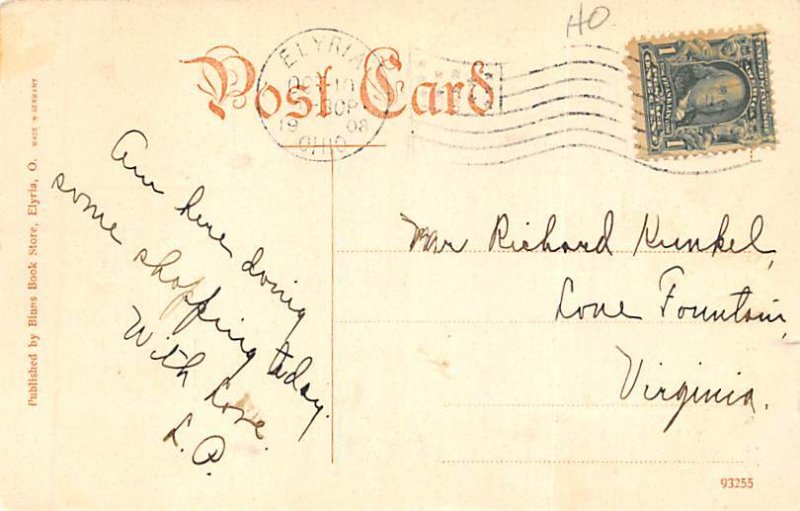 HO
Post Card
ELYRIA
OCT 10
30P
1908
OHIO
1 1
Am here doing
some shopping today.
With Love.
L.P.
Mr Richard Kunkel,
Lone Fountain,
Virginia.
Published by Binns Book Store, Elyria, O. MADE IN GERMANY
93255